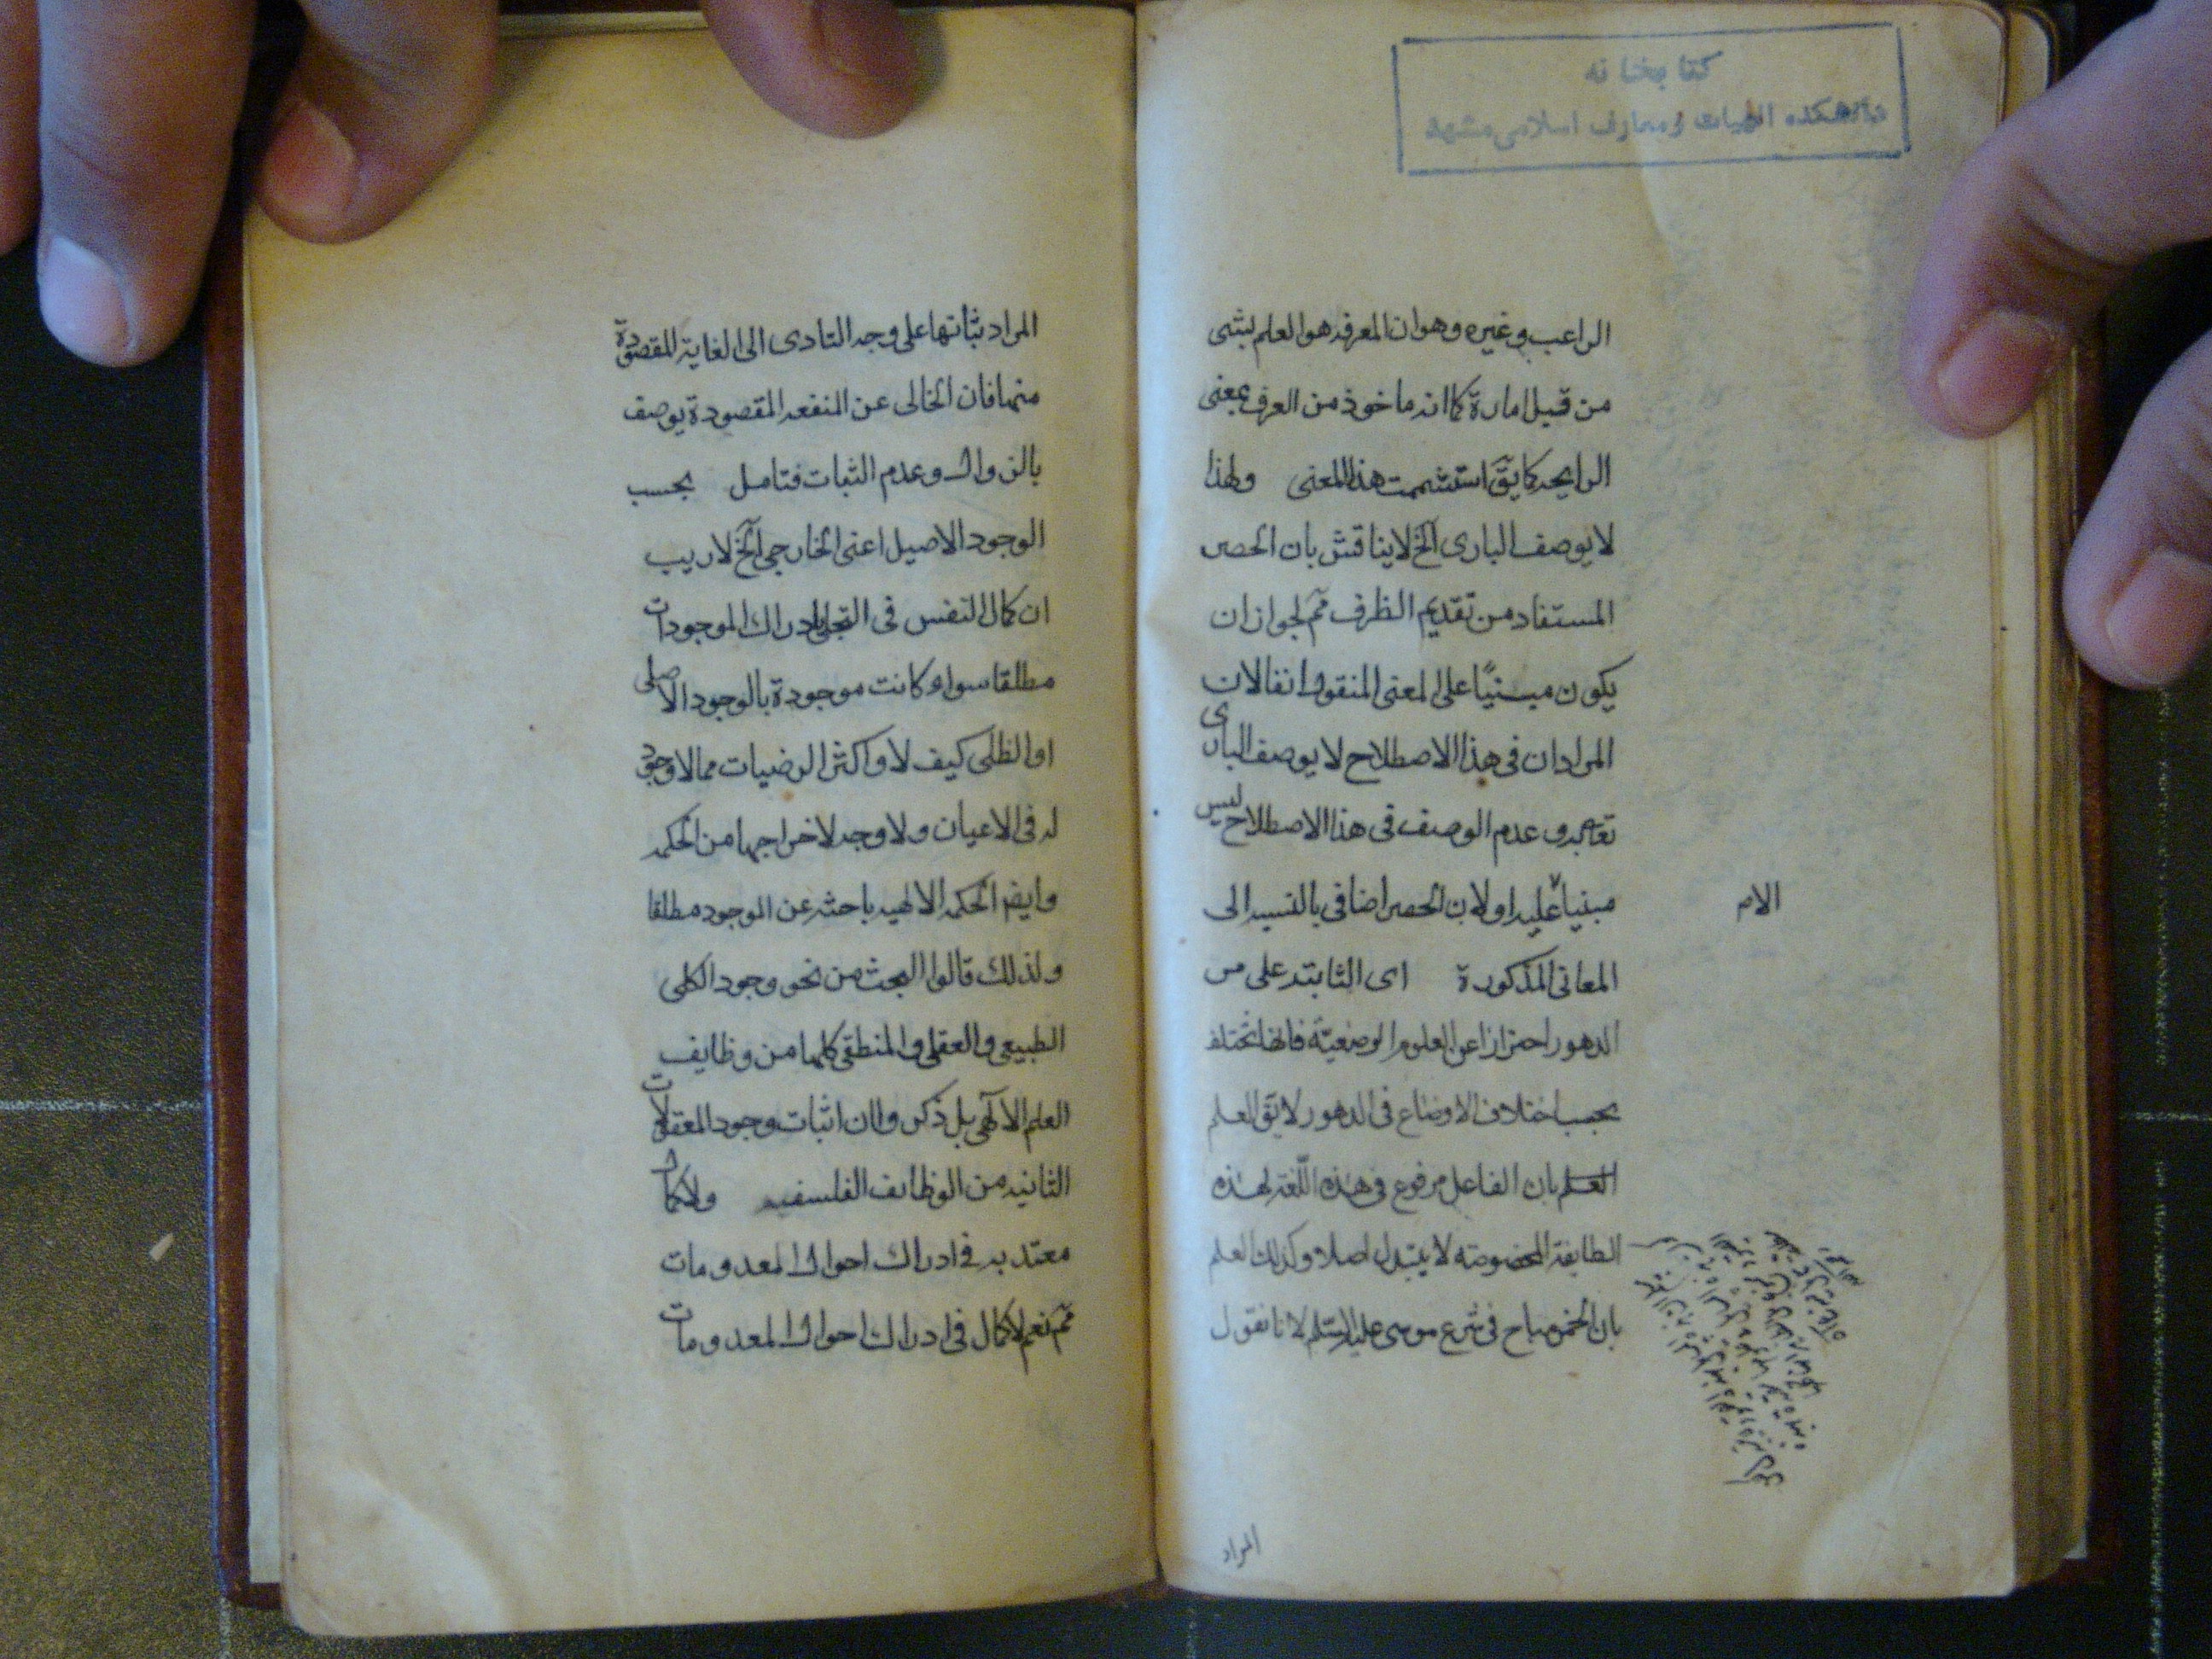 كتابخانه
دانشکده الهیات و معارف اسلامی مشهد
الراغب وغيره وهو ان المعرفه هو العلم بشئ
من قبيل امارة كما انه ماخوذ من العرف بمعنى
الرايحه كما يقَ استشممت هذا المعنى ولهذا
لا يوصف البارى الخ لا يناقش بان الحصر
المستفاد من تقديم الظرف مم لجواز ان
يكون مبنيًا على المعنى المنقول
المراد ان فى هذا الاصطلاح لا يوصف البارى
تعا به وعدم الوصف فى هذا الاصطلاح ليس
مبنيا عليه اولا بل الحصر اضافى بالنسبه الى
الام
المعانى المذكورة اى الثابته على مر
الدهور احترازا عن العلوم الوضعيّة فانها تختلف
بحسب اختلاف الاوضاع فى الدهور لا يقَ العلم
العلم بان الفاعل مرفوع فى هذه اللّغة لهذه
الطايفة المخصوصه لا يتبدل اصلا وكذلك العلم
بان الخمر مباح فى شرع موسى عليه السلم لانا نقول
المراد
المراد ثباتها على وجه التادى الى الغاية المقصودة
منها فان الخالى عن المنفعه المقصودة يوصف
بالزوال وعدم الثبات فتامل بحسب
الوجود الاصيل اعنى الخارجى الخ لا ريب
ان كمال النفس فى التحلى بادراك الموجودات
مطلقا سواء كانت موجودة بالوجود الاصلى
او الظلى كيف لا واكثر الرضيات مما لا وجود
له فى الاعيان ولا وجه لاخراجها من الحكمه
وايضم الحكمه الالهيه باحثه عن الموجود مطلقا
ولذلك قالوا البحث من نحو وجود الكلى
الطبيعى والعقلى والمنطقى كلها من وظايف
العلم الالهى بل ذكروا ان اثبات وجود المعقولات
الثانيه من الوظائف الفلسفيه ولا كمال
معتد به فى ادراك احوال المعدومات
مم نعم لا كمال فى ادراك احوال المعدومات